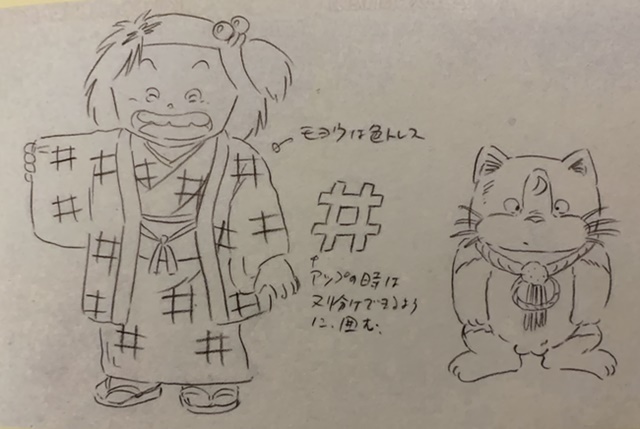 モヨウは色トレス
アップの時は
ヌリ分けできるよう
に、囲む。